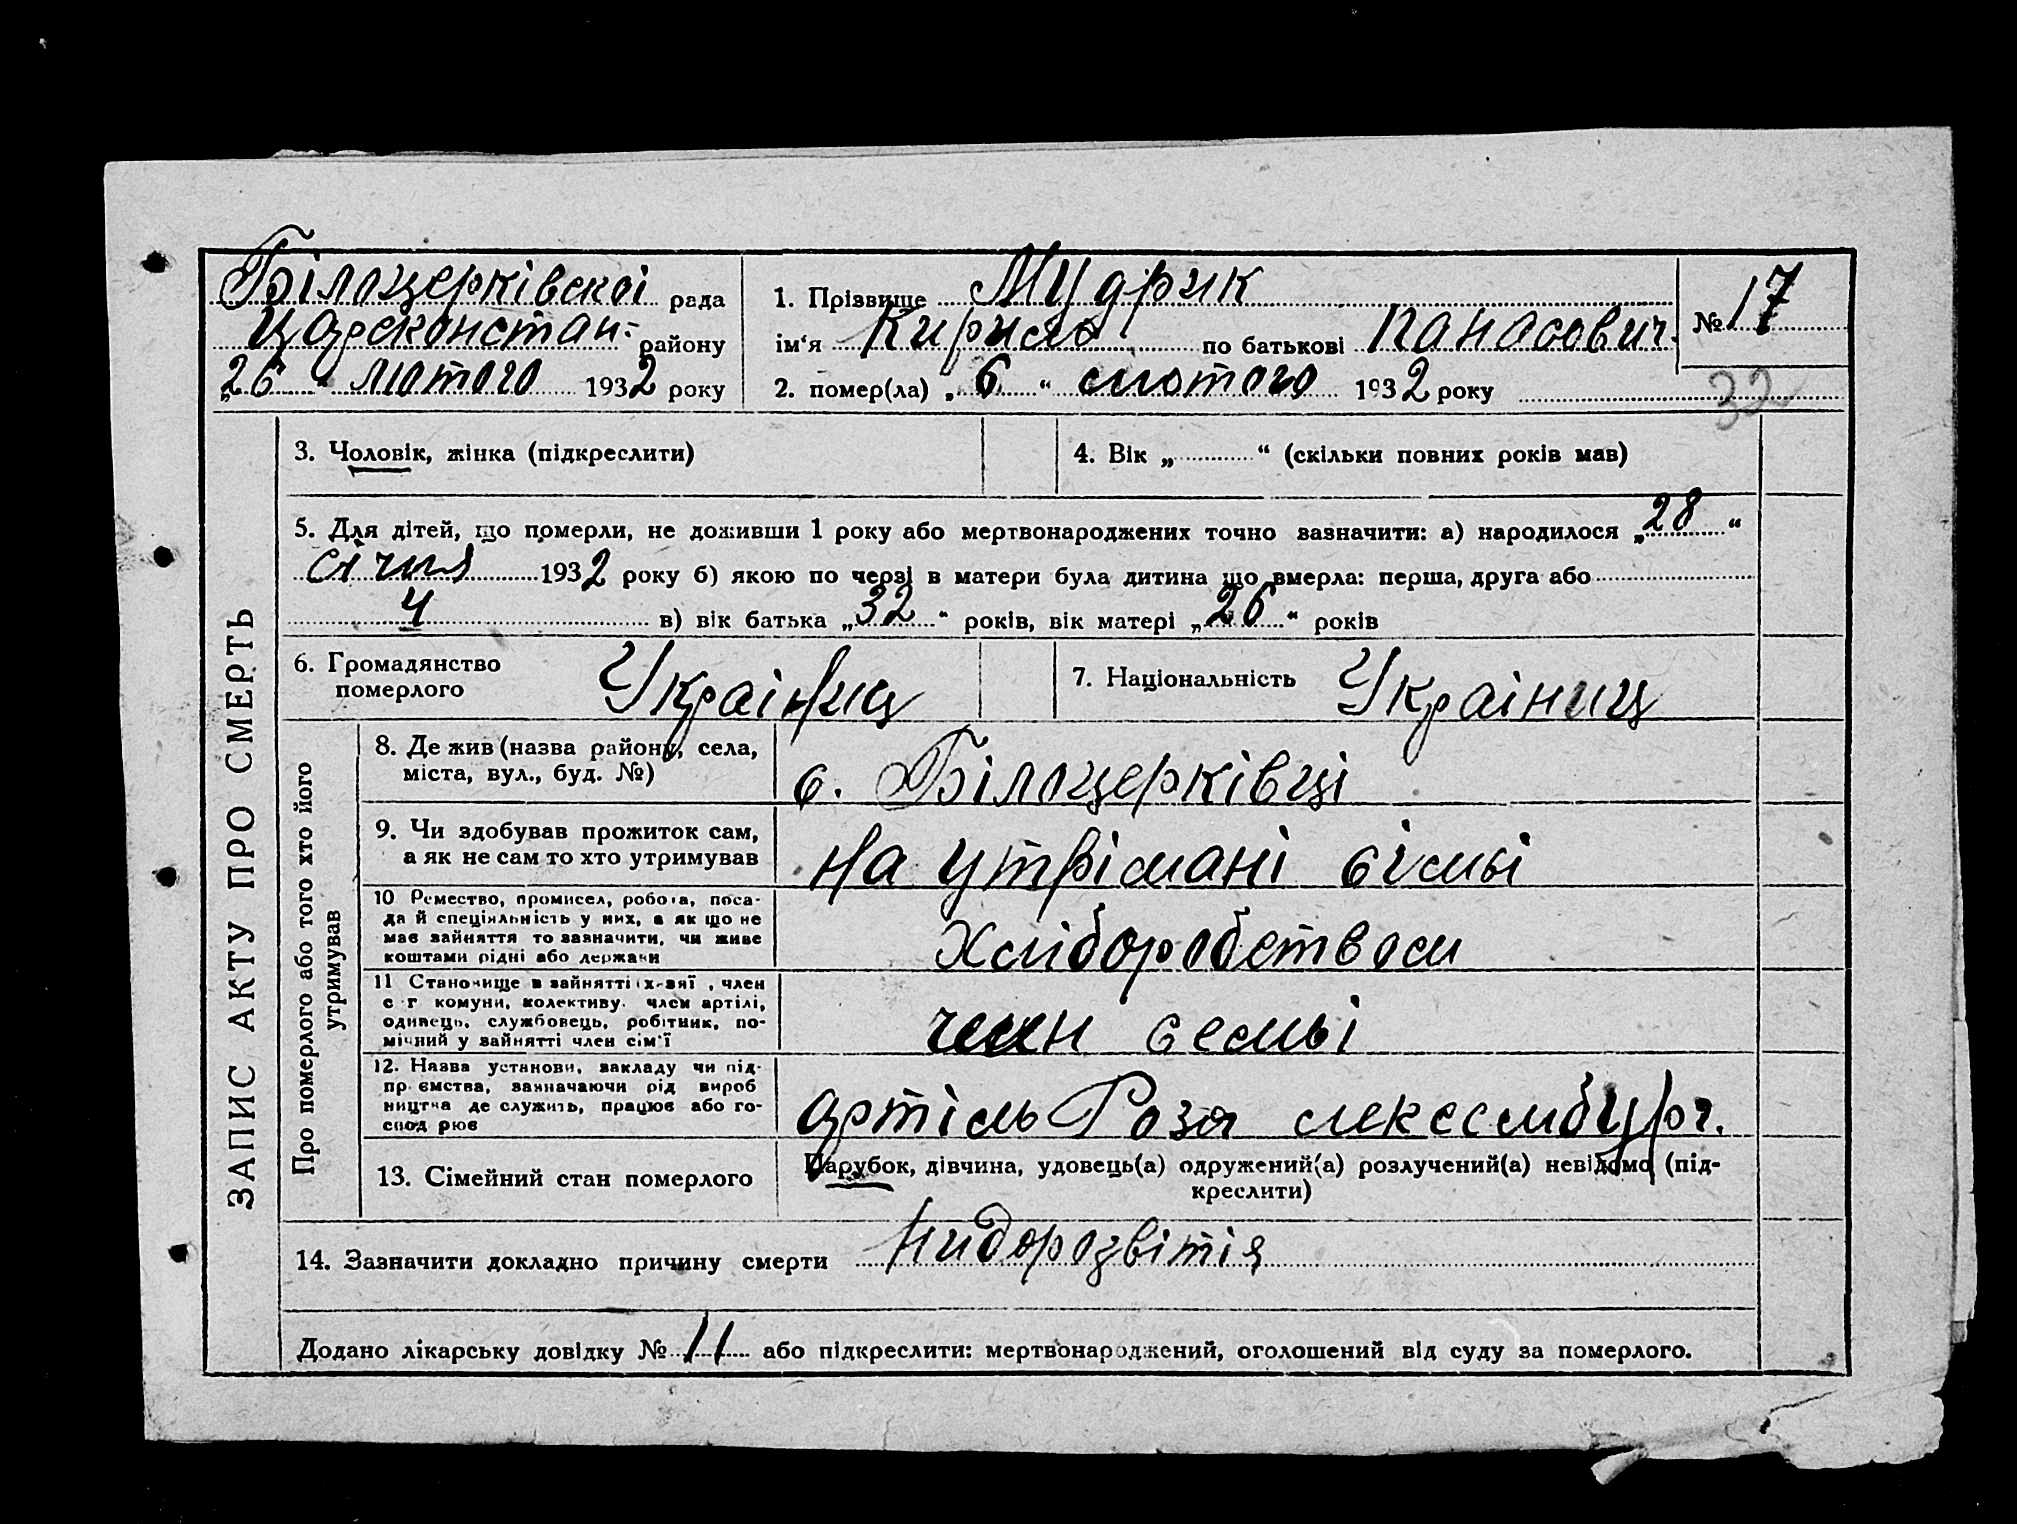 Білоцерківскої рада
Цареконстан- району
„26 " лютого 1932 року
1. Прізвище Мудрик
ім'я Кирило по батькові Панасович
2. помер(ла) „6" лютого 1932 року
№ 17
32
ЗАПИС АКТУ ПРО СМЕРТЬ
3. Чоловік, жінка (підкреслити)
4. Вік „ " (скільки повних років мав)
5. Для дітей, що померли, не доживши 1 року або мертвонароджених точно зазначити: а) народилося „28"
січня 1932 року б) якою по черзі в матери була дитина що вмерла: перша, друга або
4 в) вік батька „32" років, вік матері „26" років
6. Громадянство
померлого
Украіниц
7. Національність Украіниц
Про померлого або того хто його
утримував
8. Де жив (назва району, села,
міста, вул., буд. №)
с. Білоцерківці
9. Чи здобував прожиток сам,
а як не сам то хто утримував
на утрімані сімьі
10 Ремество, промисел, робота, поса-
да й спеціяльність у них, а як що не
має зайняття то зазначити, чи живе
коштами рідні або держави
Хліборобством
11 Становище в зайнятті , член
с г комуни, колективу. член артілі,
одинець, службовець, робітник, по-
мічний у зайнятті член сім'ї
член семьі
12. Назва установи, закладу чи під-
пр ємства, зазначаючи рід вироб
ництва де служить, працює або го-
спод рює
артіль Роза лексембург.
13. Сімейний стан померлого
Парубок, дівчина, удовець(а) одружений(а) розлучений(а) невідомо (під-
креслити)
14. Зазначити докладно причину смерти нидорозвітія
Додано лікарську довідку № 11 або підкреслити: мертвонароджений, оголошений від суду за померлого.